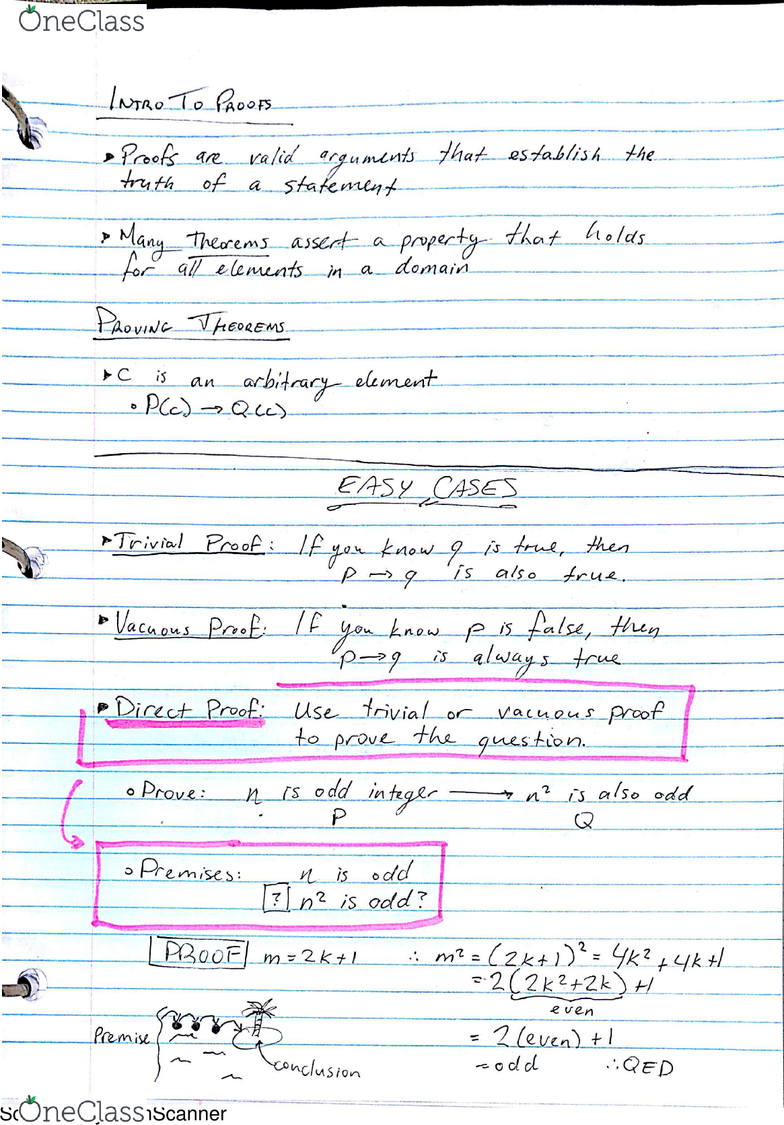 OneClass
INTRO TO PROOFS
▸ Proofs are valid arguments that establish the
truth of a statement
▸ Many Theorems assert a property that holds
for all elements in a domain
PROVING THEOREMS
▸ C is an arbitrary element
∘ P(c) → Q(c)
EASY CASES
▸ Trivial Proof: If you know q is true, then
p → q is also true.
▸ Vacuous Proof: If you know p is false, then
p → q is always true
▸ Direct Proof: Use trivial or vacuous proof
to prove the question.
∘ Prove: n is odd integer → n² is also odd
P Q
∘ Premises: n is odd
? n² is odd?
PROOF m = 2k+1 ∴ m² = (2k+1)² = 4k² + 4k+1
= 2(2k²+2k)+1
even
Premise = 2(even)+1
conclusion = odd ∴ QED
OneClass
Scanner